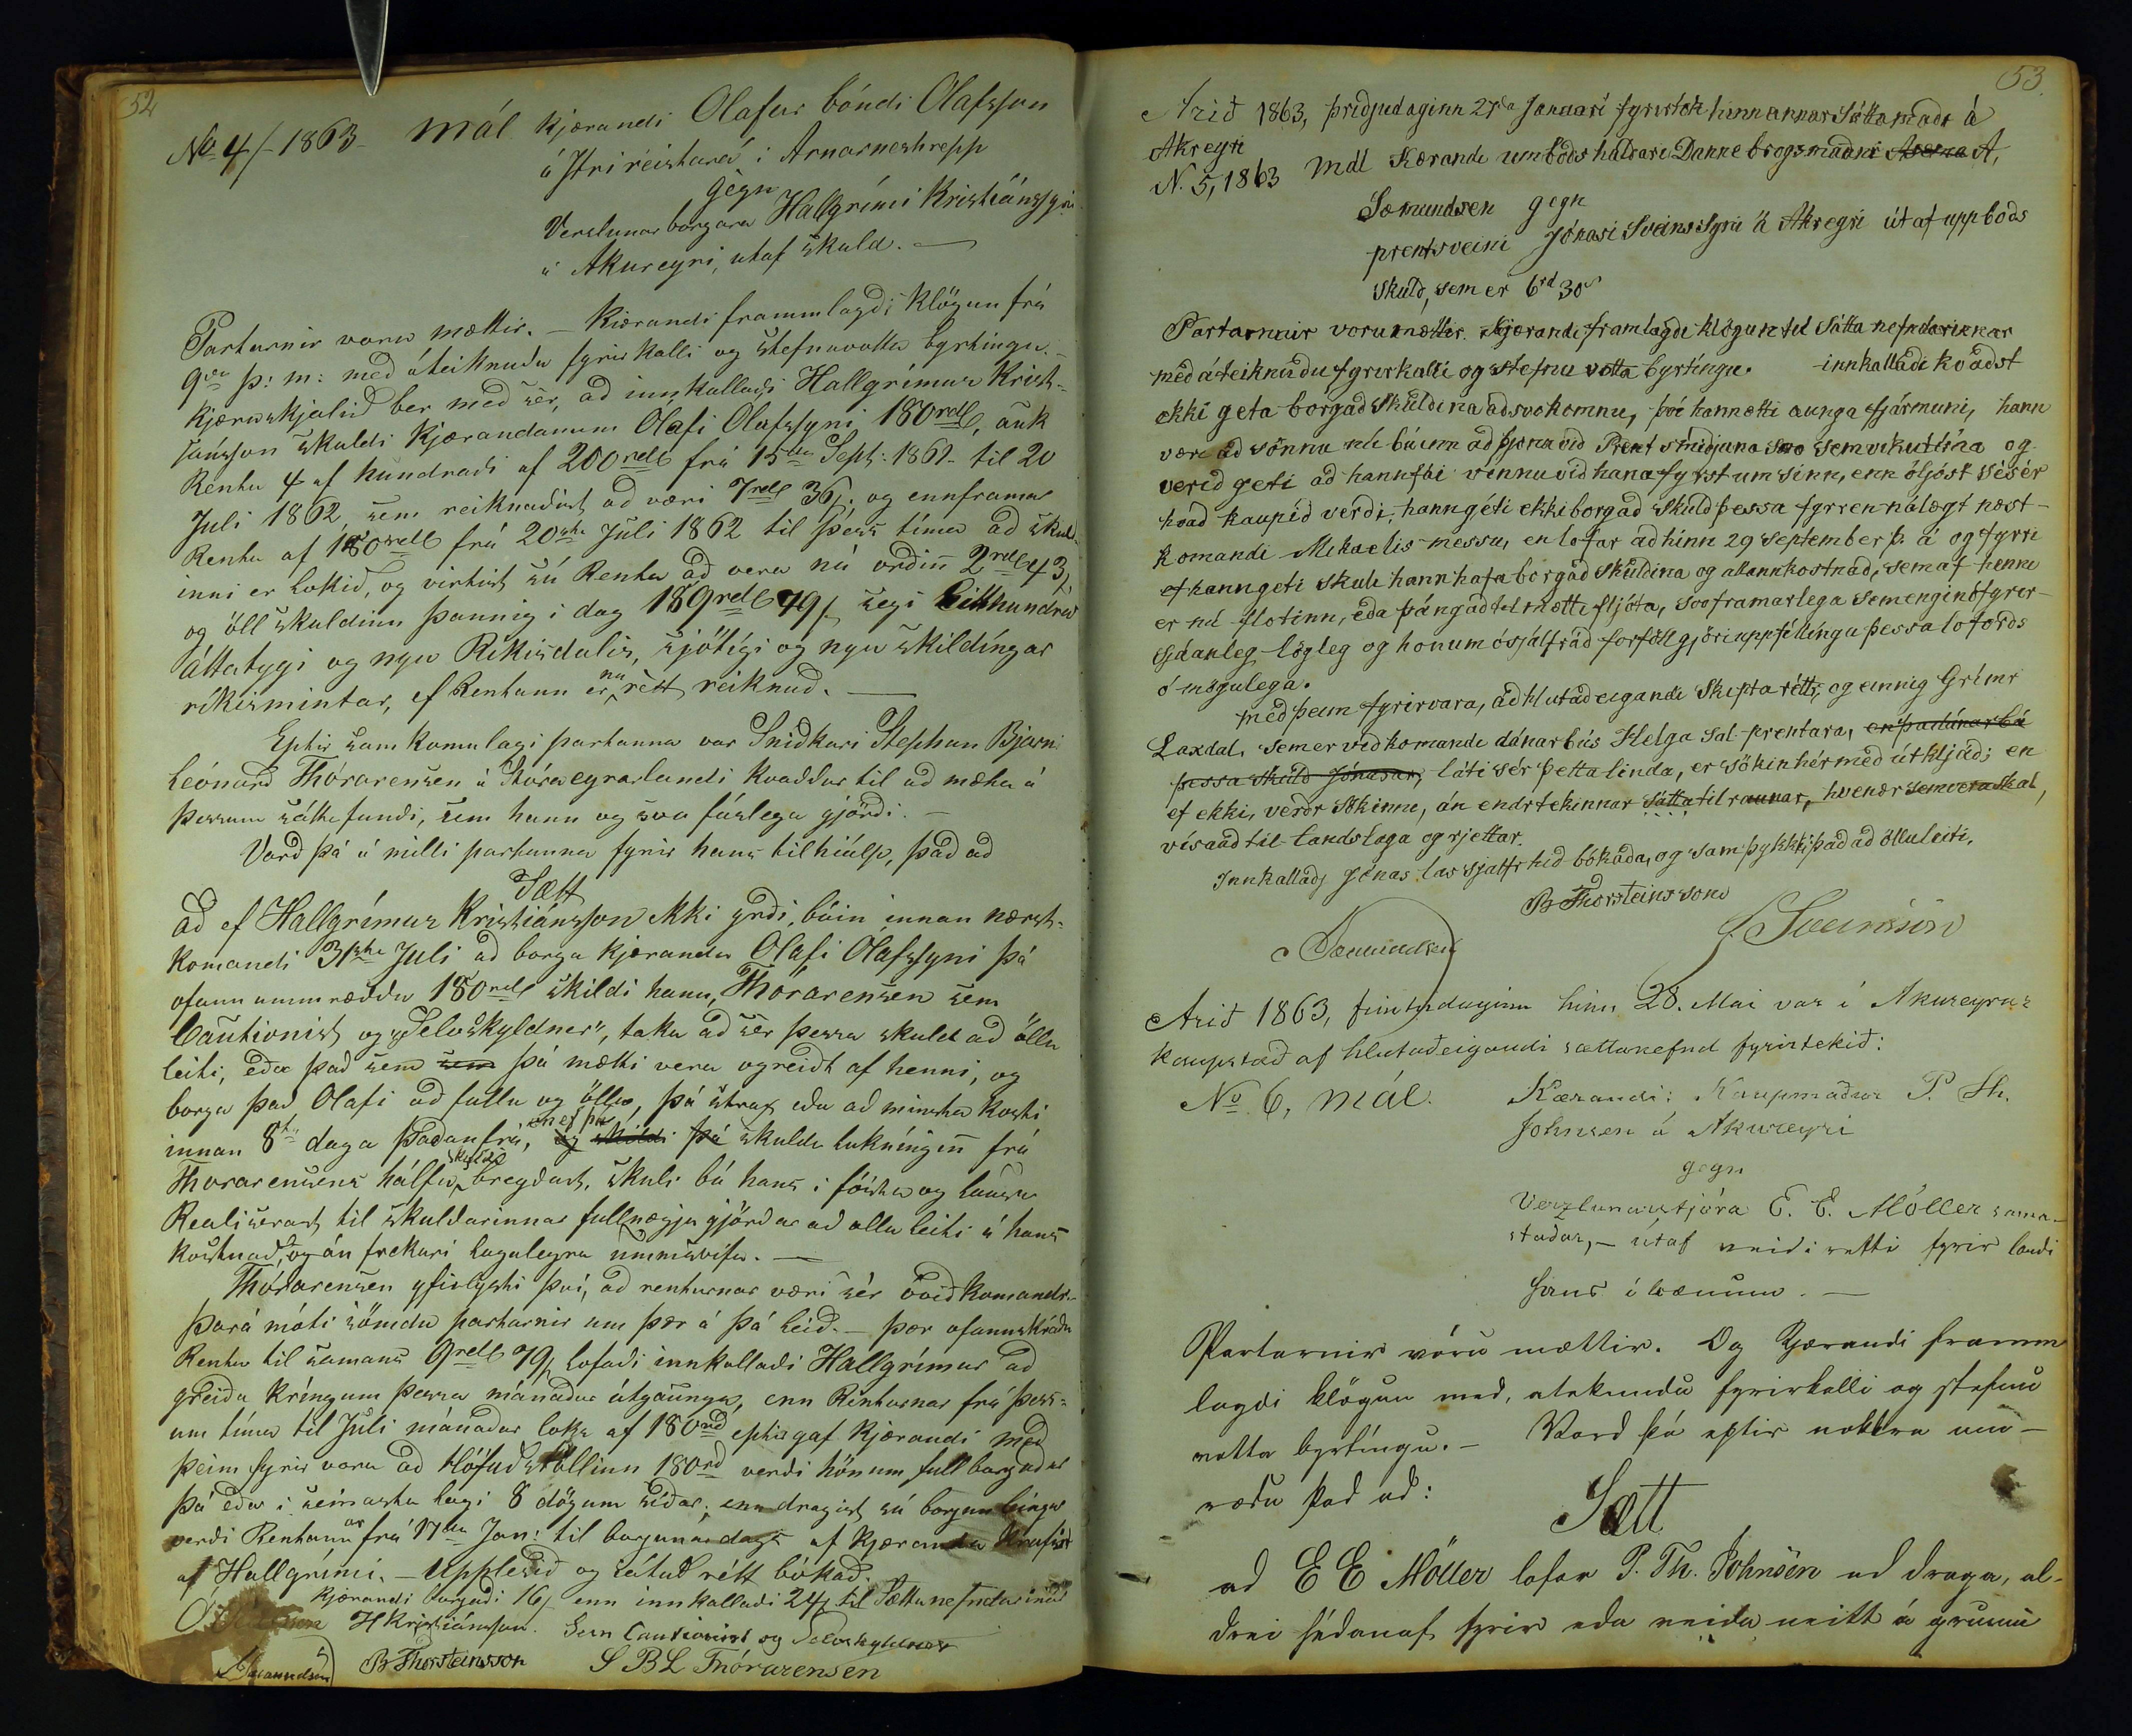 52
No 4/-1863- Mál kjærandi Olafur bóndi Olafsson
á Itrireistará i Arnarneshrepp
gégn
Verslunarborgara Hallgrími Kristiánssyni
á Akureyri, utaf skuld. —
Partarnir voru mættir. — Kiærandi frammlagdi klögun frá
9da þ: m: med áteiknudu fyrirkalli og stefnuvotta byrtingu. —
Kjæruskjalid ber med sér, ad innkalladi Hallgrímur Krist-
jánsson skuldi kjærandanum Olafi Olafssyni 180rdl, auk
Rentu 4 af hundradi af 200rdl frá 15da Sept: 1861- til 20
Juli 1862, sem reiknadist ad væri 7rdl 36s. og ennframar
Renta af 180rdl frá 20sta Juli 1862 til þess tíma ad skuld-
inni er lokid, og virtist sú Renta ad vera nú ordin 2rdl 43s
og öll skuldinn þannig i dag 189rdl 79s segi Eitthundrad
áttatygi og nyu Rikisdalir, sjötígi og nyu skildíngar
ríkismintar, ef Rentann er nu rétt reiknud. —
Eptir samkomulagi partanna var Snidkari Stephan Bjarni
Leónard Thórarensen á Stóraeyrarlandi kvaddur til ad mæta á
þessum sáttafundi, sem hann og svo fúslega gjördi. —
Vard þá á milli partanna fyrir hans tilhiálp, þad ad
Sætt
ad ef Hallgrímur Kristiánsson ekki yrdi búin innan næst-
komandi 31sta Juli ad borga kjæranda Olafi Olafssyni þá
ofannumræddu 180rdl skildi hann, Thórarensen sem
Cautionist og „Selvskyldner", taka ad sér þessa skuld ad öllu
leiti, eda þad sem sem þá mætti vera ogreidt af henni, og
borga þad Olafi ad fullu og öllu, þá strax eda ad minsta kosti
innan 8ta daga þadanfrá, en ef þá og skildi þá skulda lukníngin frá
Thorarensens hálfu skyldi bregdast, skuli bú hans i föstu og lausu
Realiserast til skuldarinnar fullnægju gjördar ad ollu leiti á hans
kostnad, og án frekari lagalegra ummsvifa. —
Thórarensen yfirlysti því, ad renturnar væri sér óvidkomandi.
Þará móti sömdu partarnir um þær á þá leid. — þær ofannskrádu
Rentu til samans 9rdl 79s lofadi innkalladi Hallgrímur ad
greida kríngum þessa mánadar útgaungu, enn Renturnar frá þess-
um tíma til Juli mánadar loka af 180rd eptirgaf kjærandi med
þeim fyrirvara ad Höfudstóllinn 180rd verdi hönum full borgadur
þá eda i seinasta lagi 8 dögum sídar, enn dragist sú borgun leingur
verdi Rentannar frá 17da Jan: til borgunardags af kjæranda krafist
af Hallgrími. — Upplesid og játad rétt bókad.
Kjærandi borgadi 16s enn innkalladi 24s til Sættanefndarinnar
H Kristiánsson. Sem Cautionist og Selvskyldner
B Thorsteinsson S B L Thórarensen
53.
Arið 1863, þriðjudaginn 27da Januari fyrirtok hinn annar Sáttamadr á
Akreyri
N. 5, 1863 Mál Kærandi umbodshaldari Dannebrogsmadur A,
Sæmundsen gegn
prentsveini Jónasi Sveinssyni á Akreyri út af uppbods
skuld, sem er 6rd 30s
Partarnnir voru mættir. Kjærandi framlagdi klögun til Sáttanefndarinnar
med áteiknudu fyrirkalli og stefnu votta byrtingu. innkalladi kvadst
ekki geta borgad skuldina ad svo komnu, því hann ætti aunga fjármuni, hann
være ad sönnu nú búinn ad þjena vid Prentsmidjuna svo sem vikutíma og
verid geti ad hann fái vinnu vid hana fyrst um sinn, enn óljóst sé sér
hvad kaupid verdi, hann géti ekki borgad skuld þessa fyrr en nálægt næst-
komandi Mikaelis-messu, en lofar ad hinn 29 september þ. á og fyrri
ef hann geti skuli hann hafa borgad skuldina og allann kostnad, sem af henni
er nú flotinn, eda þángadtil mætti fljóta, svo framarlega sem enginófyrir-
sjáanleg lögleg og honum ósjálfrád forföll gjöri uppfillíngu þessa lofords
ómögulega.
med þeim fyrirvara, ad hlutadeigandi Skiptarettr, og einnig Grímr
Laxdal, sem er vidkomandi dánarbús Helga Sal. prentara, en þad dánarbú
þessa skuld Jónasar, láti sér þetta linda, er sökin hér med útkljád; en
ef ekki, verdr sökinni, án endrtekinnar sáttatilraunar, hvenær sem vera skal,
vísaad til Landslaga og rjettar.
Innkalladi Jónas las sjalfr hid bókada, og samþykkti það ad ölluleiti.
B Thorsteinsson
ASæmundsen J. Sveinsson
Arið 1863, fimtudaginn hinn 28. Mai var i Akureyrar
kaupstað af hlutaðeigandi sættanefnd fyrirtekið:
No. 6, mál. Kærandi: Kaupmaður P. Th.
Johnsen á Akureyri
gegn
Verzlunarstjóra E. E. Möller sama-
staðar, — útaf veidi retti fyrir landi
hans i bænum. —
Partarnir vóru mættir. Og Kjærandi framm
lagdi klögun med, ateknudu fyrirkalli og stefnu
votta byrtingu. — Vard þá eptir nokkra um-
rædu þad ad:
Sætt
ad E E Möller lofar P. Th. Johnsen ad draga, al-
drei hédanaf fyrir eda veida neitt á grunni